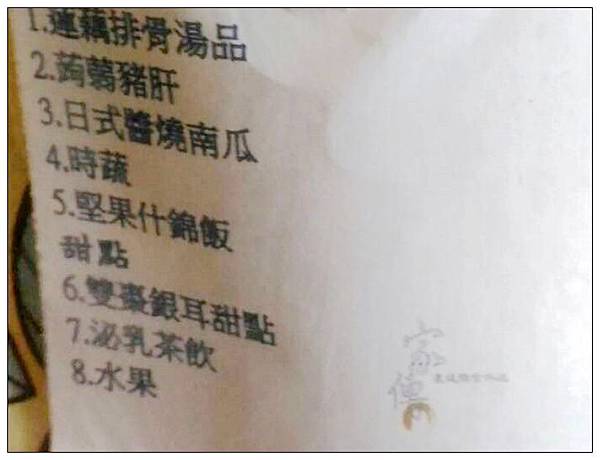 1.蓮藕排骨湯品
2.蒟蒻豬肝
3.日式醬燒南瓜
4.時蔬
5.堅果什錦飯
甜點
6.雙棗銀耳甜點
7.泌乳茶飲
8.水果
家
傳